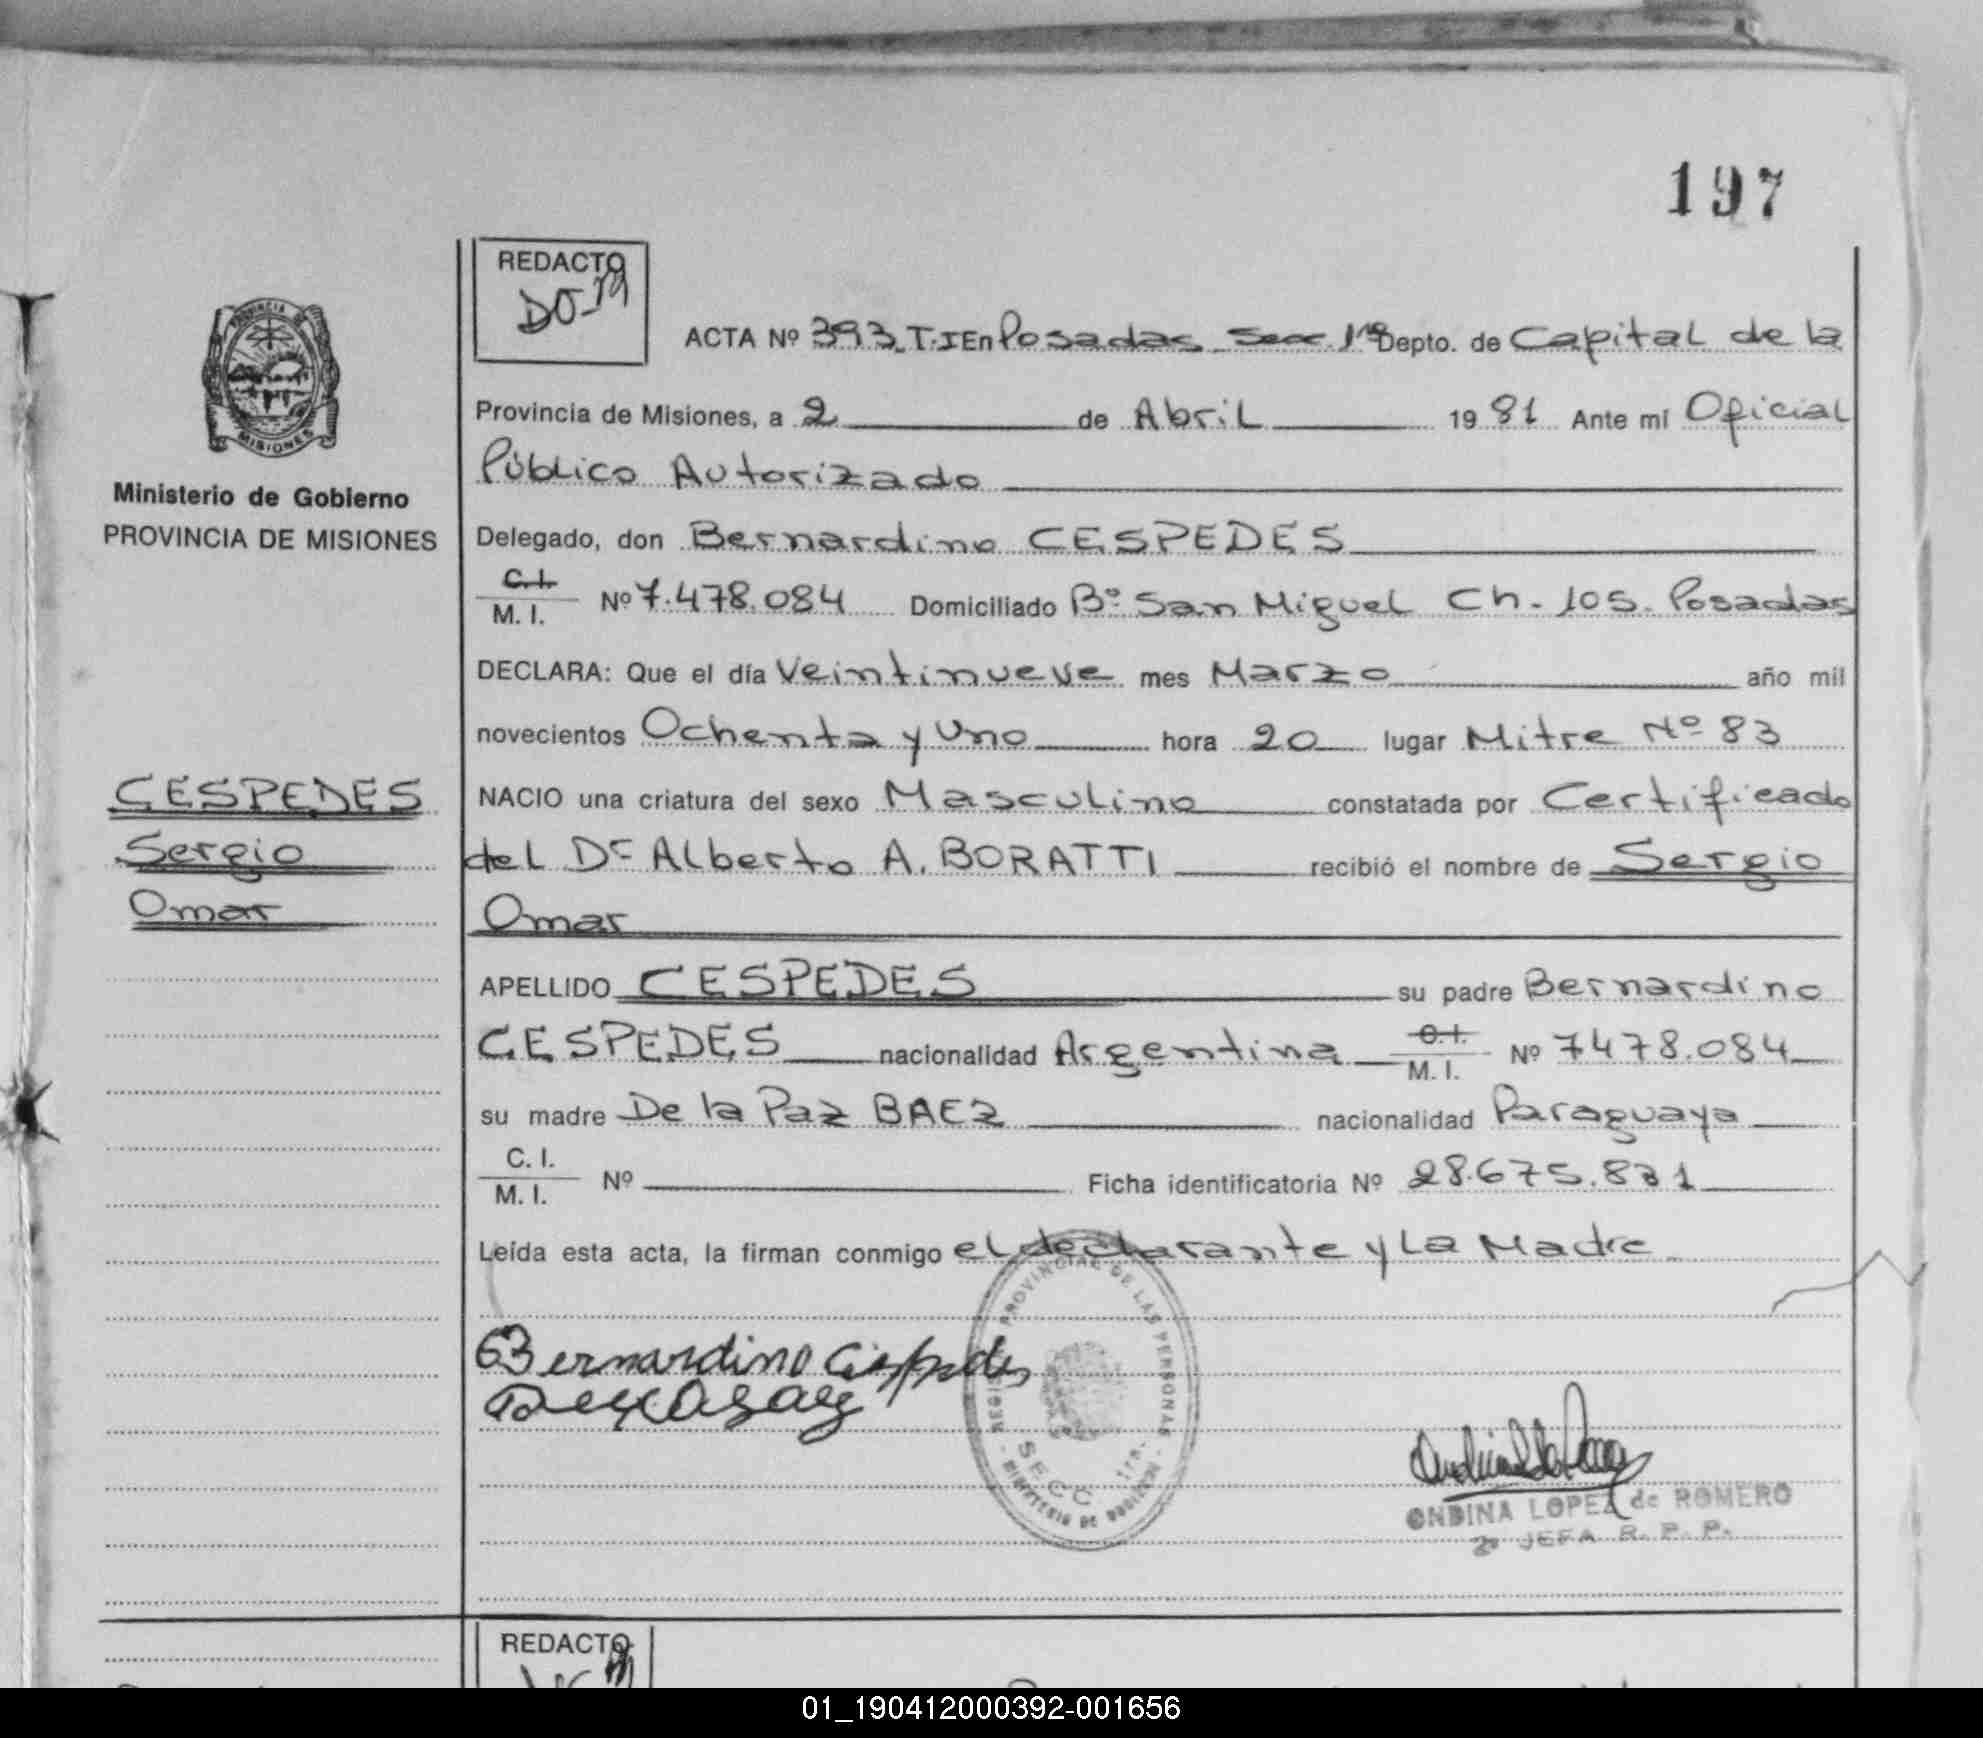 197
REDACTO
PROVINCIA DE
MISIONES
ACTA Nº 393.T.I En Posadas Secc 1ra Depto. de Capital de la
Provincia de Misiones, a 2 de Abril 1981 Ante mí Oficial
Ministerio de Gobierno
PROVINCIA DE MISIONES
Público Autorizado
Delegado, don Bernardino CESPEDES
C.I.
M. I. Nº 7.478.084 Domiciliado Bº San Miguel Ch. 105. Posadas
DECLARA: Que el día Veintinueve mes Marzo año mil
novecientos Ochenta y Uno hora 20 lugar Mitre Nº 83
CESPEDES
Sergio
Omar
NACIO una criatura del sexo Masculino constatada por Certificado
del Dr Alberto A. BORATTI recibió el nombre de Sergio
Omar
APELLIDO CESPEDES su padre Bernardino
CESPEDES nacionalidad Argentina C.I. M. I. Nº 7478.084
su madre De la Paz BAEZ nacionalidad Paraguaya
C. I.
M. I. Nº Ficha identificatoria Nº 28.675.831
Leída esta acta, la firman conmigo el declarante y La Madre
Bernardino Cespedes
PROVINCIAL DE LAS PERSONAS
SECC 1ra.
MINISTERIO DE GOBIERNO
ONDINA LOPEZ de ROMERO
2º JEFA R. P. P.
REDACTO
01_190412000392-001656